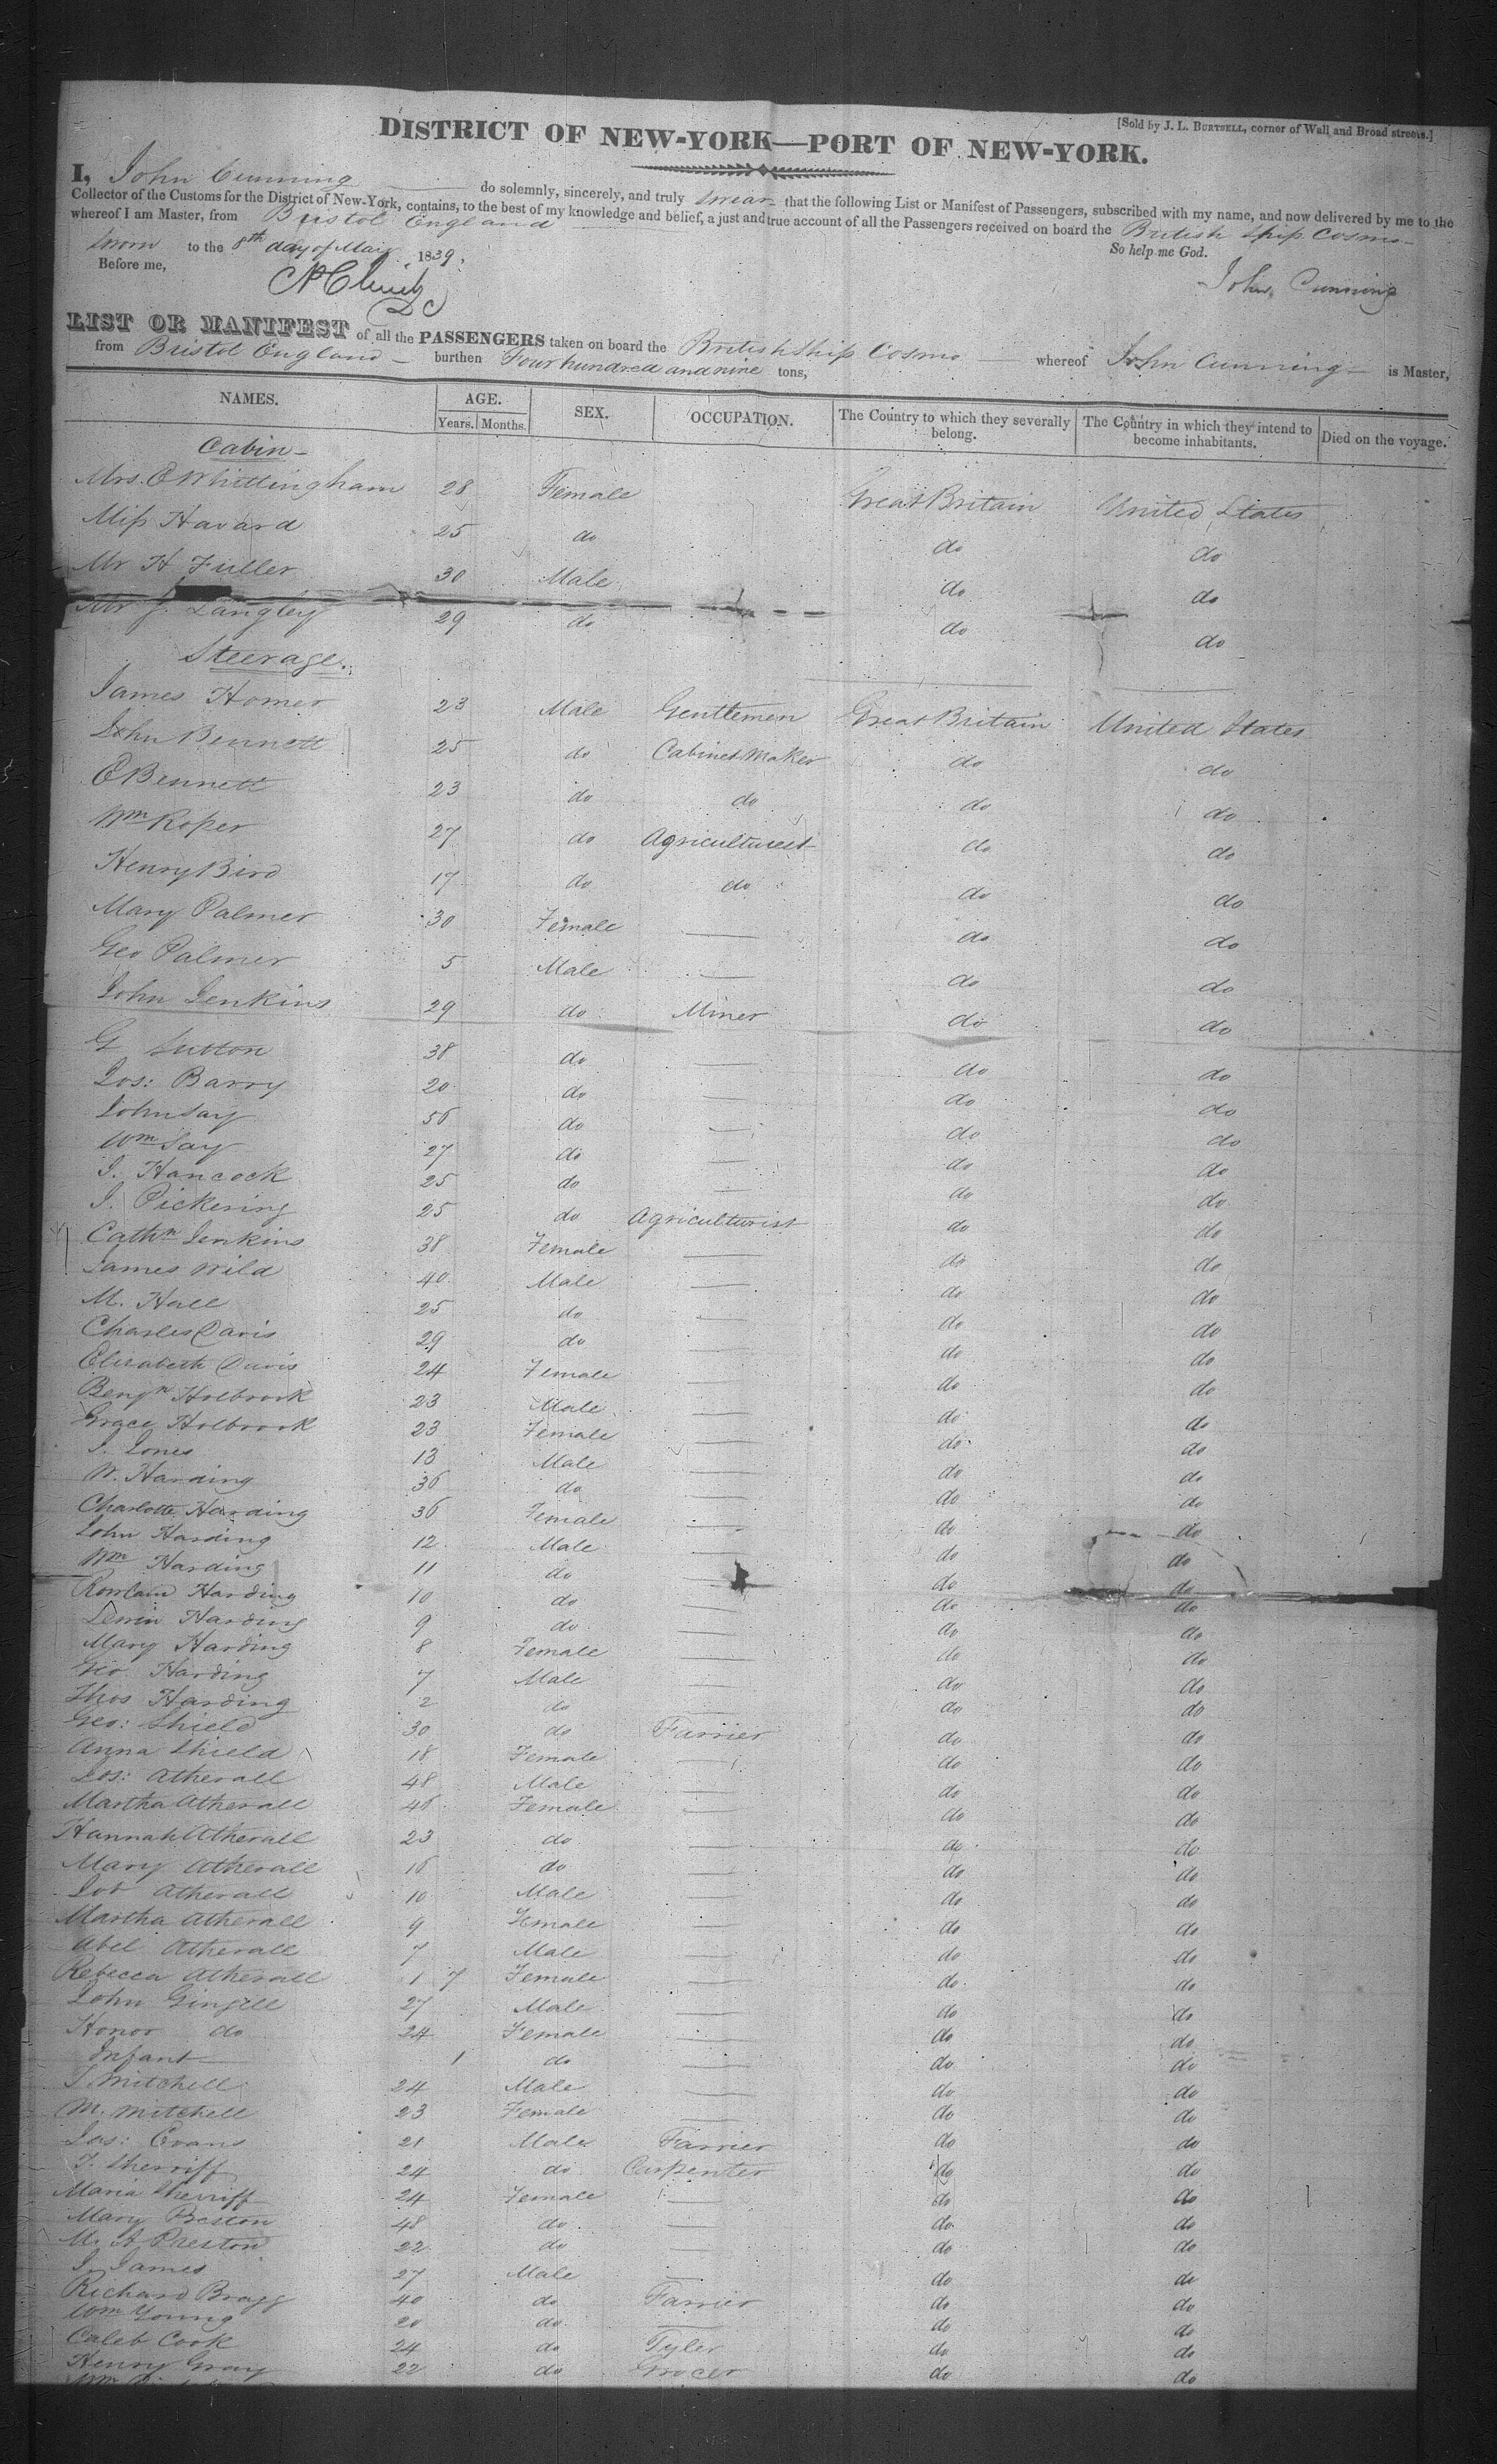 [Sold by J. L. BURTSELL, corner of Wall and Broad streets.]
DISTRICT OF NEW-YORK—PORT OF NEW-YORK.
I, John Cunning do solemnly, sincerely, and truly swear that the following List or Manifest of Passengers, subscribed with my name, and now delivered by me to the
Collector of the Customs for the District of New-York, contains, to the best of my knowledge and belief, a just and true account of all the Passengers received on board the British Ship Cosmo
whereof I am Master, from Bristol England
So help me God.
Sworn to the 8th day of May 1839.
Before me,
John Cunning
LIST OR MANIFEST of all the PASSENGERS taken on board the British Ship Cosmo whereof John Cunning is Master,
from Bristol England burthen Four hundred and nine tons,
NAMES. AGE. Years. Months. SEX. OCCUPATION. The Country to which they severally belong. The Country in which they intend to become inhabitants. Died on the voyage.
Cabin
Mrs. E Whittingham 28 Female Great Britain United States
Miss Havard 25 do do do
Mr H Fuller 30 Male do do
Mr J. Langley 29 do do do
Steerage.
James Homer 23 Male Gentlemen Great Britain United States
John Bennett 25 do Cabinet Maker do do
E Bennett 23 do do do do
Wm Roper 27 do Agriculturist do do
Henry Bird 17 do do do do
Mary Palmer 30 Female — do do
Geo Palmer 5 Male — do do
John Jenkins 29 do Miner do do
G Sutton 38 do — do do
Jos: Barry 20 do — do do
John Say 56 do — do do
Wm Say 27 do — do do
J. Hancock 25 do — do do
J. Pickering 25 do Agriculturist do do
Cathn Jenkins 38 Female — do do
James Wild 40 Male — do do
M. Hall 25 do — do do
Charles Davis 29 do — do do
Elizabeth Davis 24 Female — do do
Benjn Holbrook 23 Male — do do
Grace Holbrook 23 Female — do do
J. Jones 13 Male — do do
W. Harding 36 do — do do
Charlotte Harding 36 Female — do do
John Harding 12 Male — do do
Wm Harding 11 do — do do
Harding 10 do — do do
Harding 9 do — do do
Mary Harding 8 Female — do do
Geo Harding 7 Male — do do
Thos Harding 2 do — do do
Geo: Shield 30 do Farrier do do
Anna Shield 18 Female — do do
Jos: Atherall 48 Male — do do
Martha Atherall 46 Female — do do
Hannah Atherall 23 do — do do
Mary Atherall 16 do — do do
Job Atherall 10 Male — do do
Martha Atherall 9 Female — do do
Abel Atherall 7 Male — do do
Rebecca Atherall 1 7 Female — do do
John Gingell 27 Male — do do
Honor do 24 Female — do do
Infant 1 do — do do
J. Mitchell 24 Male — do do
M. Mitchell 23 Female — do do
Jas: Evans 21 Male Farrier do do
T. Sherriff 24 do Carpenter do do
Maria Sherriff 24 Female — do do
Mary 48 do — do do
M. A. Preston 22 do — do do
J. James 27 Male — do do
Richard Bragg 40 do Farrier do do
Wm Young 20 do — do do
Caleb Cook 24 do Tyler do do
Henry Gray 22 do Grocer do do